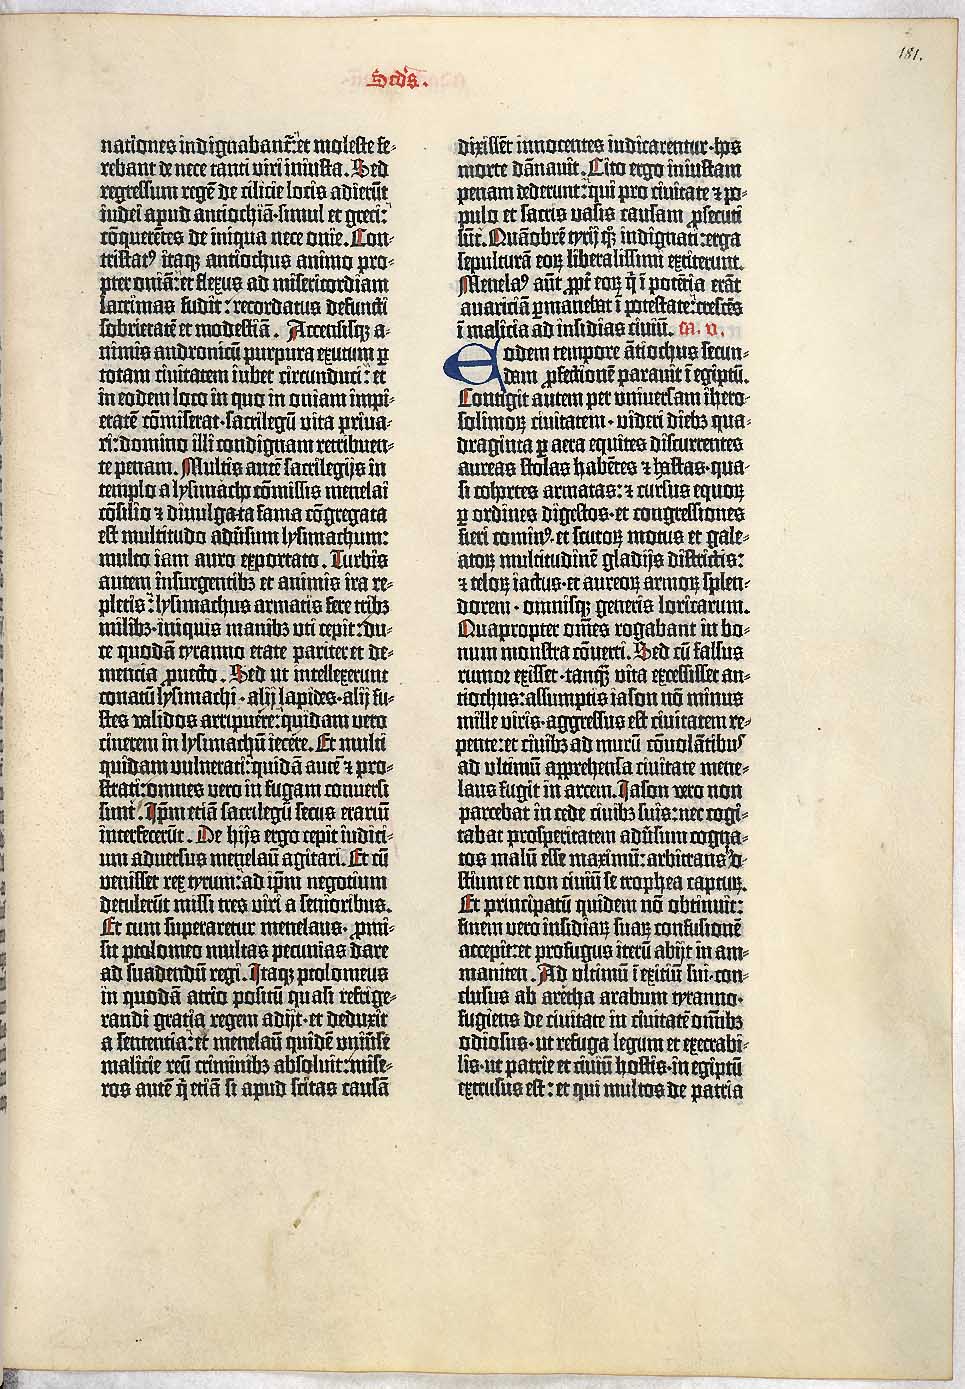 181.
Scd's.
nationes indignabant᷑: et moleste fe-
rebant de nece tanti viri iniusta. Sed
regressum regē de cilicie locis adierūt
iudei apud antiochiā · simul et greci:
cōquerētes de iniqua nece onie. Con-
tristatꝰ itaqꝫ antiochus animo pro-
pter oniā: et flexus ad misericordiam
lacrimas fudit: recordatus defuncti
sobrietatē et modestiā. Accensisqꝫ a-
nimis andronicū purpura exutum ꝑ
totam civitatem iubet circumduci: et
in eodem loco in quo in oniam impi-
etatē cōmiserat · sacrilegū vita priva-
ri: domino illi condignam retribuen-
te penam. Multis autē sacrilegijs in
templo a lysimacho cōmissis menelai
cōsilio ⁊ divulgata fama cōgregata
est multitudo adūsum lysimachum:
multo iam auro exportato. Turbis
autem insurgentibꝫ et animis ira re-
pletis: lysimachus armatis fere tribꝫ
milibꝫ · iniquis manibꝫ uti cepit: du-
ce quodā tyranno etate pariter et de-
mencia ꝓuecto. Sed ut intellexerunt
conatū lysimachi · alij lapides · alij fu-
stes validos arripuere: quidam vero
cinerem in lysimachū iecere. Et multi
quidam vulnerati: quidā autē ⁊ pro-
strati: omnes vero in fugam conversi
sunt. Ip̄m etiā sacrilegū secus erariū
interfecerūt. De hijs ergo cepit iudici-
um adversus menelaū agitari. Et cū
venisset rex tyrum: ad ip̄m negotium
detulerūt missi tres viri a senioribus.
Et cum superaretur menelaus · ꝓmi-
sit ptolomeo multas pecunias dare
ad suadendū regi. Itaqꝫ ptolomeus
in quodā atrio positū quasi refrige-
randi gratia regem adijt · et deduxit
a sententia: et menelaū quidē univ̄se
malicie reū criminibꝫ absolvit: mise-
ros autē q̄ etiā si apud scitas causā
dixissēt innocentes iudicarentur · hos
morte dānavit. Cito ergo iniustam
penam dederunt: qui pro civitate ⁊ po-
pulo et sacris vasis causam ꝓsecuti
sūt. Quāobrē tyrij qꝫ indignati: erga
sepulturā eoꝝ liberalissimi extiterunt.
Menelaꝰ aūt ꝓpt̄ eoꝝ q̄ ī potētia erāt
avariciā ꝑmanebat ī potestate: crescēs
ī malicia ad insidias civiū. Ca. v.
Eodem tempore ātiochus secun-
dam ꝓfectionē paravit ī egiptū.
Contigit autem per universam ihero-
solimoꝝ civitatem · videri diebꝫ qua-
draginta ꝑ aera equites discurrentes
aureas stolas habētes ⁊ hastas · qua-
si cohortes armatas: ⁊ cursus equoꝝ
ꝑ ordines digestos · et congressiones
fieri cominꝰ · et scutoꝝ motus et gale-
atoꝝ multitudinē gladijs districtis:
⁊ teloꝝ iactus · et aureoꝝ armoꝝ splen-
dorem · omnisqꝫ generis loricarum.
Quapropter om̄es rogabant in bo-
num monstra cōverti. Sed cū falsus
rumor exisset · tanqꝫ vita excessisset an-
tiochus: assumptis iason nō minus
mille viris · aggressus est civitatem re-
pente: et civibꝫ ad murū cōvolātibuſ
ad ultimū apprehensa civitate mene-
laus fugit in arcem. Iason vero non
parcebat in cede civibꝫ suis: nec cogi-
tabat prosperitatem adūsum cogna-
tos malū esse maximū: arbitrans ho-
stium et non civiū se trophea capturꝝ.
Et principatū quidem nō obtinuit:
finem vero insidiaꝝ suaꝝ confusionē
accepit: et profugus iterū abijt in am-
maniten. Ad ultimū ī exitiū sui · con-
clusus ab aretha arabum tyranno ·
fugiens de civitate in civitatē om̄ibꝫ
odiosus · ut refuga legum et execrabi-
lis · ut patrie et civiū hostis · in egiptū
extrusus est: et qui multos de patria